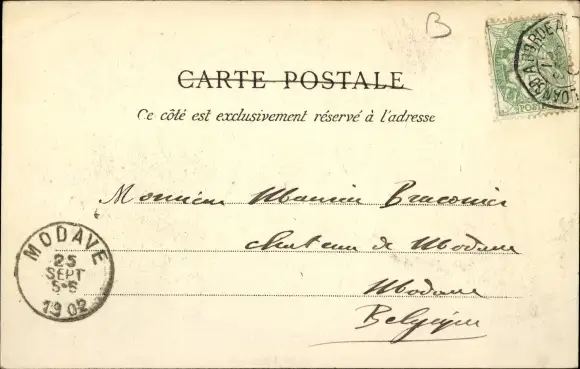 B
CARTE POSTALE
Ce côté est exclusivement réservé à l'adresse
Monsieur Maurice Braconier
Chateau de Modave
Modave
Belgique
MODAVE
25
SEPT
5-6
1902
POST